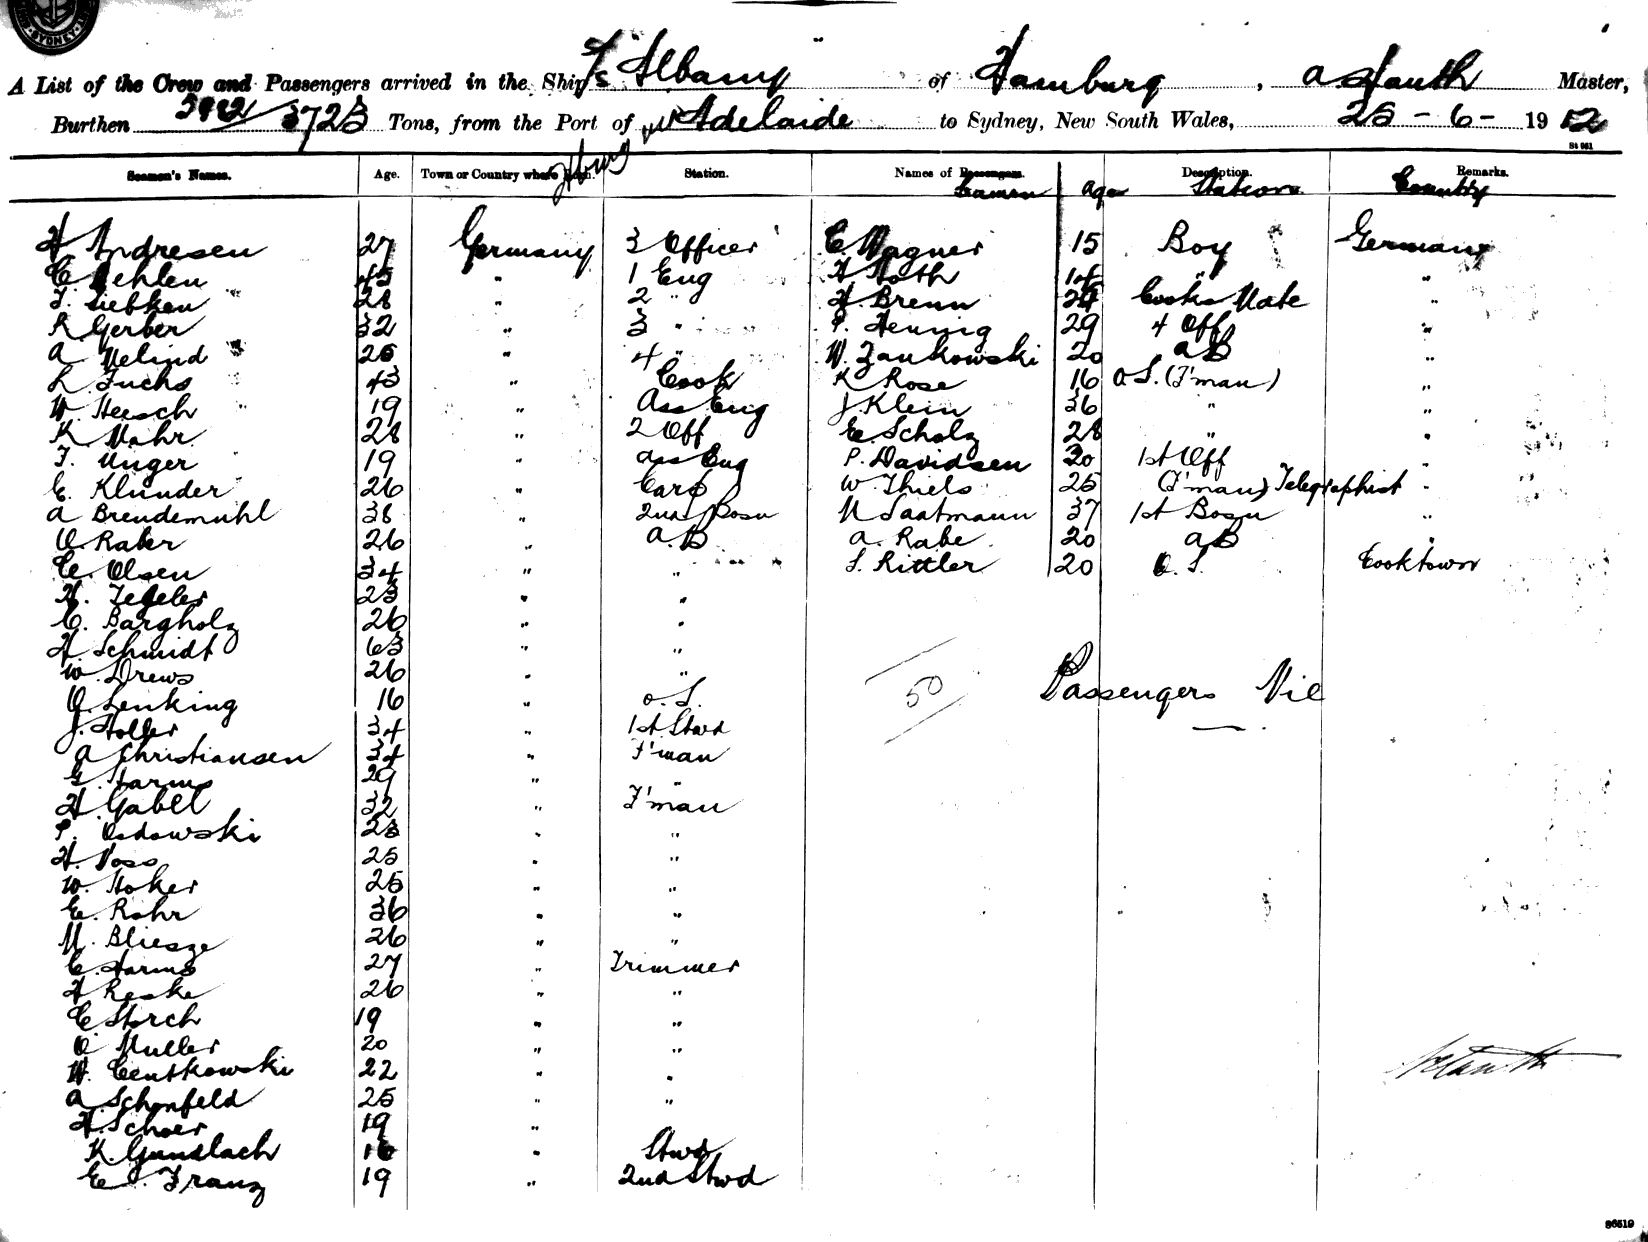 SYDNEY
A List of the Crew and Passengers arrived in the Ship Albany of Hamburg, A Stauth Master,
Burthen 3723 Tons, from the Port of Adelaide to Sydney, New South Wales, 25-6-1912
St 961
Seamen's Names. Age. Town or Country where born. Station. Names of Passengers. Description. Remarks.
Seamen Age Station Country
H Andresen 27 Germany 3 Officer C. Wagner 15 Boy Germany
C Oehlen 45 " 1 Eng H Stoth 14 " "
F. Siefken 28 " 2 " H. Brenn Cooks Mate "
R Gerber 32 " 3 " P. Hennig 29 4 Off "
A Melind 25 " 4 " W. Zankowski 20 AB "
L. Fuchs 43 " Cook K Rose 16 O S. (F'man) "
W. Heesch 19 " Ass Eng J Klein 36 " "
K. Mahr 28 " 2 Off E. Scholz 28 " "
F. Unger 19 " Ass Eng P. Davidsen 30 1st Off "
E. Klunder 26 " Carp W Thiels 25 (F'man) Telegraphist "
A Brendemuhl 38 " 2nd Bosn N Saatmann 37 1st Bosn "
O. Raber 26 " A.B A. Rabe 20 AB "
C. Olsen 34 " " S. Rittler 20 O. S. Cooktown
H. Tegeler 23 " "
C. Bargholz 26 " "
H Schmidt 63 " "
W. Drews 26 " "
O. Lenking 16 " O. S.
50 Passengers Nil
J. Holler 34 " 1st Stwd
A Christiansen 34 " F'man
G Harms 29 " "
H. Gabel 32 " F'man
P. Osdowski 23 " "
H. Voss 25 " "
W. Hoker 25 " "
E. Rohr 36 " "
M. Bliesze 26 " "
C. Harms 27 " Trimmer
H Reske 26 " "
C Storch 19 " "
O Muller 20 " "
W. Centkowski 22 " "
A Schonfeld 25 " "
H. Schoer 19 "
K. Gundlach 16 " Stwd
E. Franz 19 " 2nd Stwd
S6519